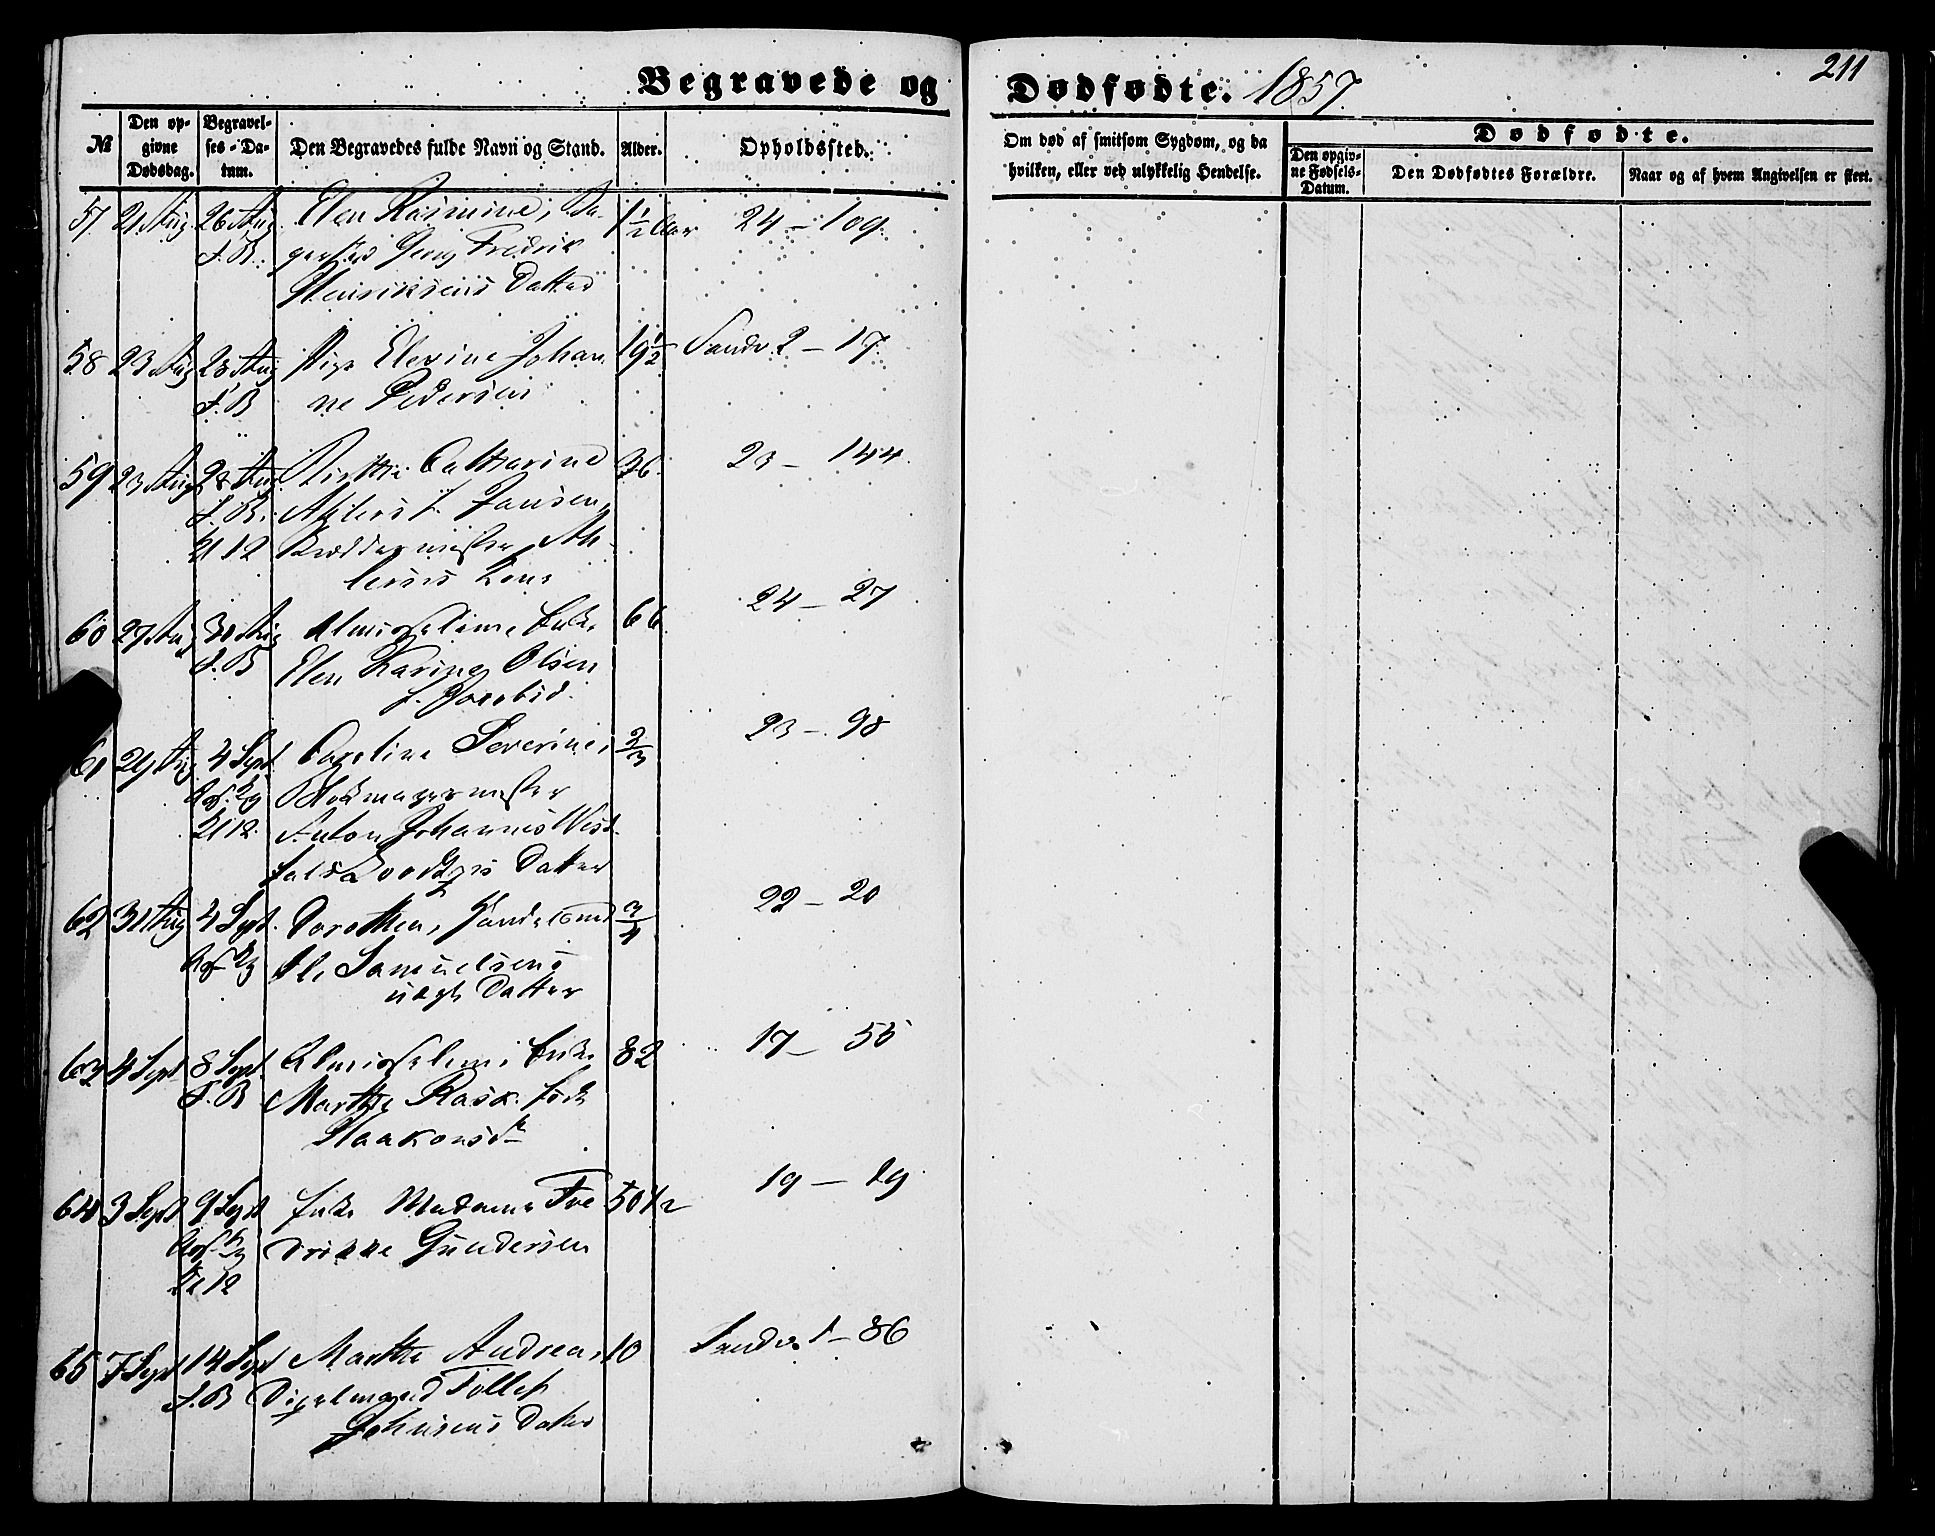 Begravede og Dødfødte. 1857
211
№
Den opgivne Dødsdag.
Begravelses-Datum.
Den Begravedes fulde Navn og Stand.
Alder.
Opholdssted.
Om død af smitsom Sygdom, og da hvilken, eller ved ulykkelig Hendelse.
Dødfødte.
Den opgivne Fødsels-Datum.
Den Dødfødtes Forældre.
Naar og af hvem Angivelsen er skeet.
57 21 Aug 26 Aug Elen Rasmine, Ba- 1 1/2 Aar 24 – 109
J. B. Fredrik
Henriksens Datter
58 23 Aug 28 Aug Pige Elevine Johan 19 1/2 Sandv. 2 – 17
J. B ne Pedersen
59 23 Aug 28 Aug Cathrine 36 23 – 144
J. B. Ahlers f. Jansen,
Al 12 Ah-
lers's Kone
60 27 Aug 31 Aug Almisselem Enke 66 24 – 27
J. B Elen Karine Olsen
61 29 Aug 4 Sept Caroline Severine, 2/3 23 – 98
Blokmagermester
Al 12. Anton Johannes West-
Datter
62 31 Aug 4 Sept. Dorothea, Handelsmd 3/4 22 – 20
Samuelsens
uægte Datter
63 4 Sept 8 Sept. Almisselem, Enke 82 17 – 55
J. B Marthe Rask. født
Haakonsd
64 3 Sept 9 Sept Enke Madame Fre 50 1/2 19 – 19
drikke Gundersen
Al 12
65 7 Sept 14 Sept Marthe Andrea, 10 Sandv. 1 – 86
J. B Tollef
Johnsens Datter